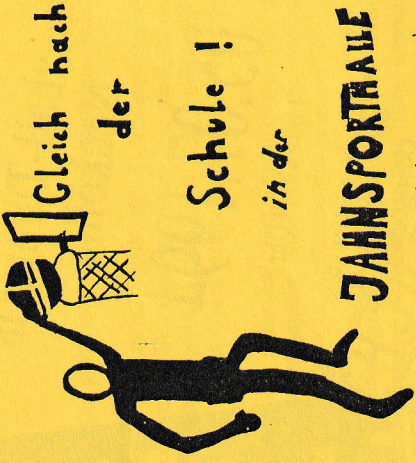 Gleich nach
der
Schule!
in der
JAHNSPORTHALLE